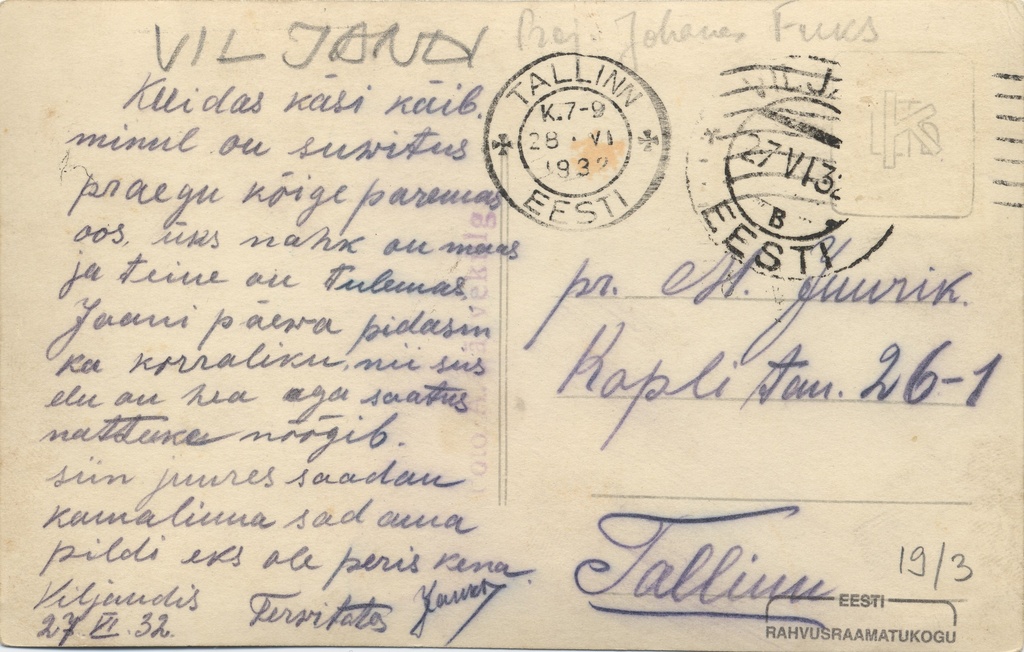 VILJANDI
Proj. Johanes Fuks
Kuidas käsi käib.
minul on suwitus
praegu kõige paremas
oos, üks nahk on maas
ja teine on tulemas
Jaani päewa pidasin
ka korraliku, nii sus
elu on hea aga saatus
nattuke nöögib.
siin juures saadan
kamalinna sadama
pildi eks ole peris kena.
Viljandis
27 VI. 32.
Terwitates
TALLINN
K.7-9
28 VI
1932
EESTI
VILJA
27 VI 32
B
EESTI
pr. M. Juurik.
Kopli tän. 26-1
Tallinn
19/3
EESTI
RAHVUSRAAMATUKOGU